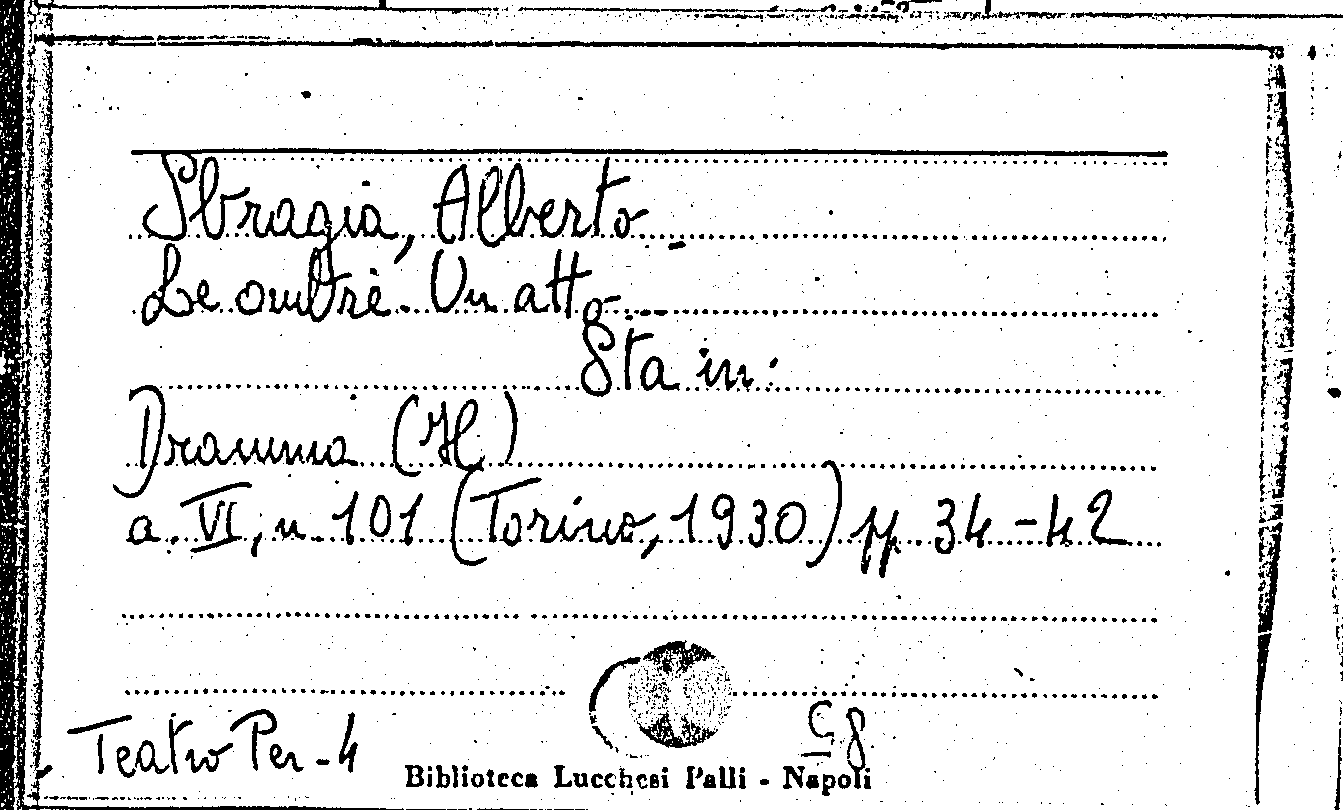 Sbragia, Alberto -
Le ombre. Un atto. -
Sta in:
Dramma (Il)
a. VI, n. 101 (Torino, 1930) pp. 34-42
Teatro Per-4
Biblioteca Lucchesi Palli - Napoli